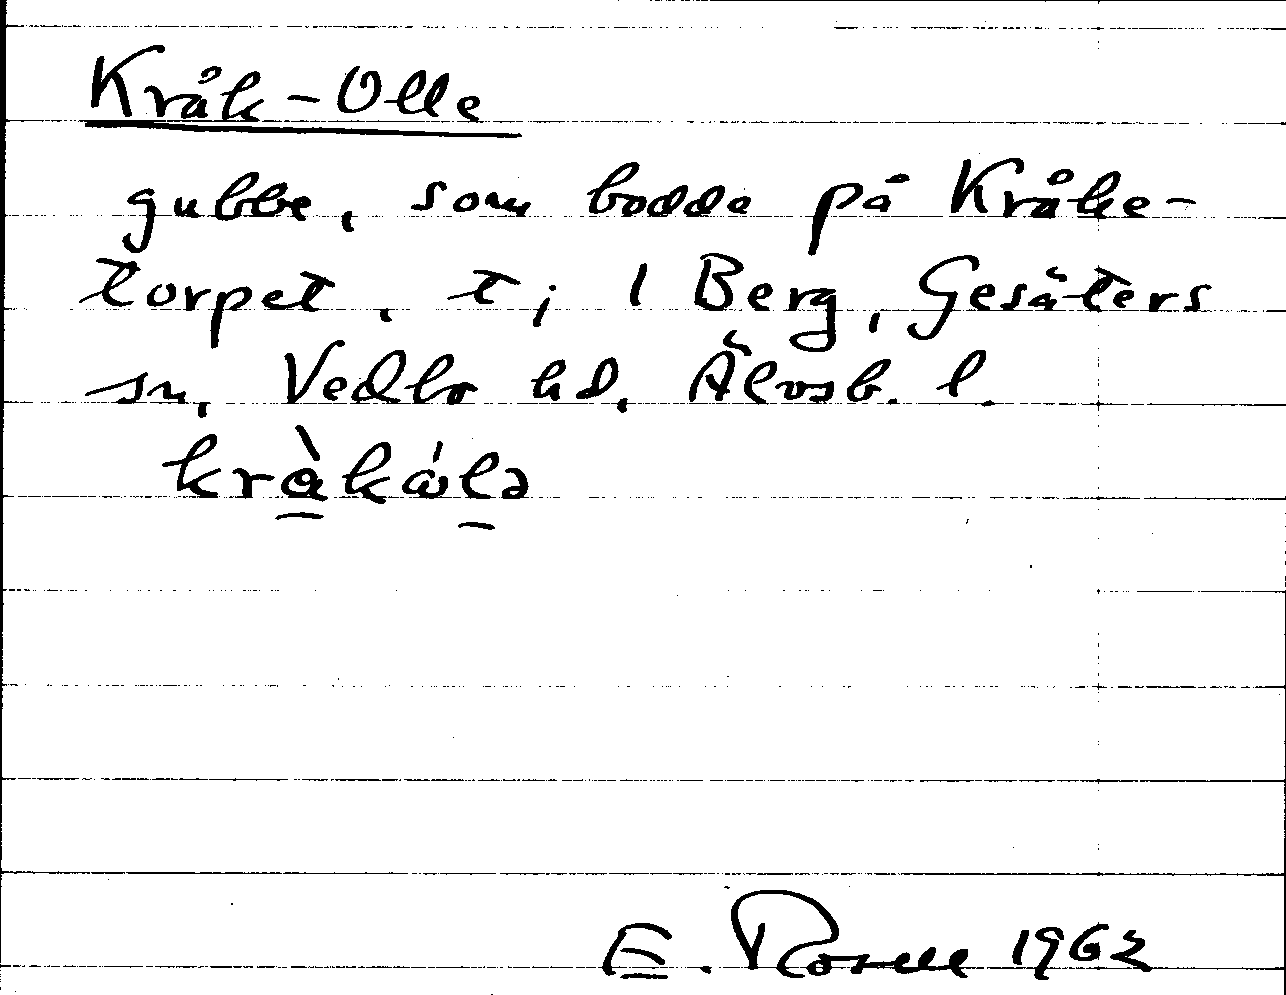 Kråk-Olle
gubbe, som bodde på Kråke-
torpet, t; 1 Berg, Gesäters
sn, Vedbo hd, Älvsb. l.
kràkálə
E. Rosell 1962